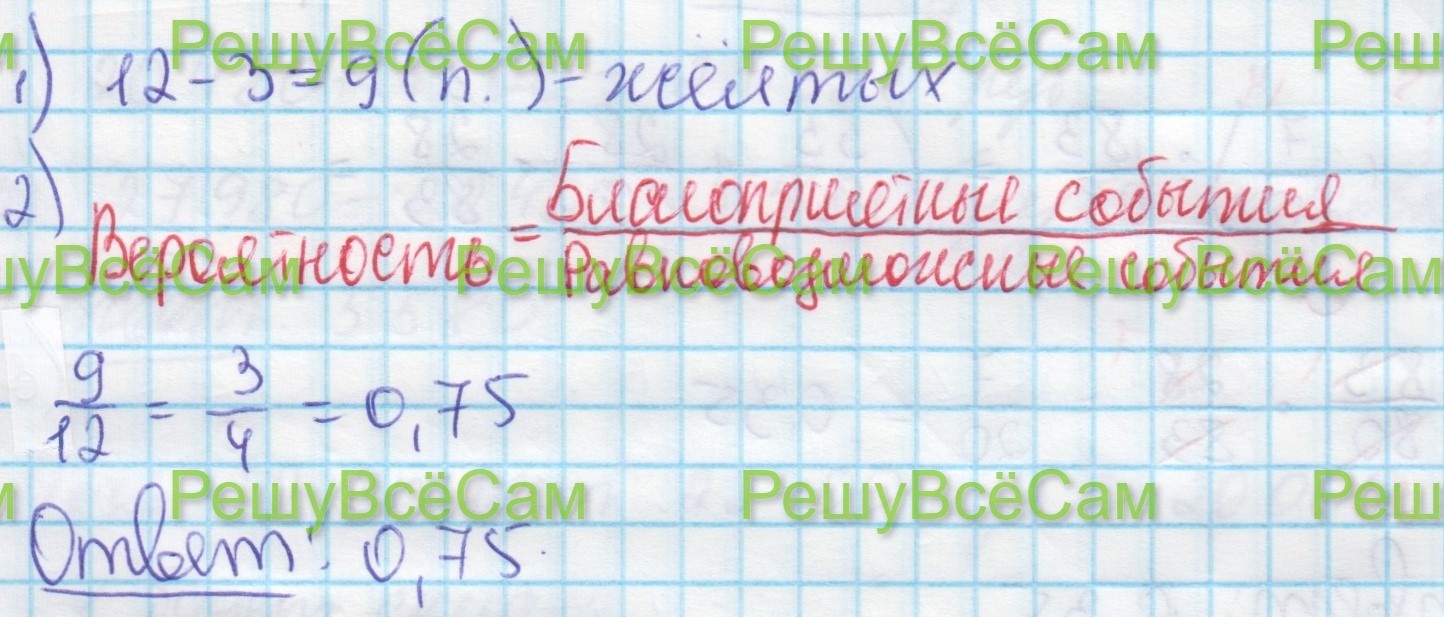 РешуВсёСам РешуВсёСам Реш
1) 12 - 3 = 9 (п.) - жёлтых
2) Вероятность = Благоприятные события
Равновозможные события
шуВсёСам РешуВсёСам РешуВсёСам
9/12 = 3/4 = 0,75
м РешуВсёСам РешуВсёСам Реш
Ответ: 0,75.